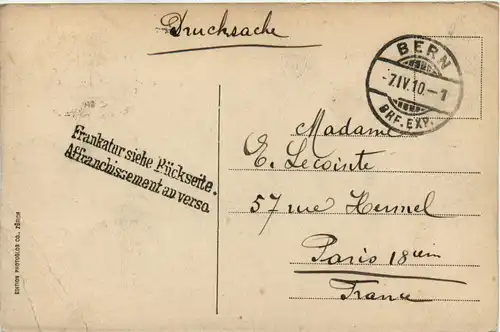 Drucksache
BERN
-7.IV.10.-1
BRF. EXP.
Frankatur siehe Rückseite.
Affranchissement au verso.
Madame
E. Lecointe
57 rue Hermel
Paris 18em
France
EDITION PHOTOGLOB CO., ZÜRICH